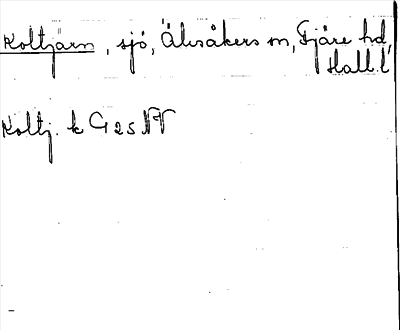 Koltjärn, sjö, Älvsåkers sn, Fjäre hd,
Hall. l
Koltj. k G 25 NV